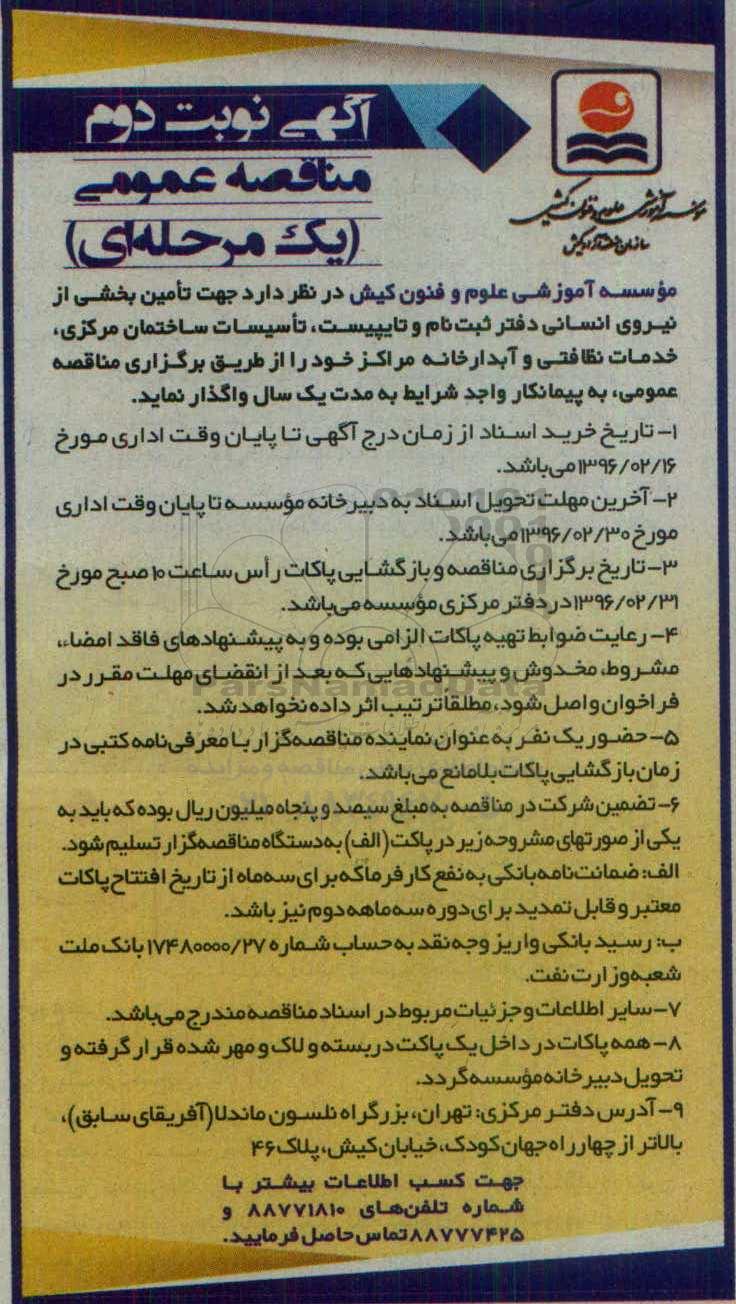 آگهی نوبت دوم
مناقصه عمومی
(یک مرحله‌ای)
مؤسسه آموزشی علوم و فنون کیش
سازمان منطقه آزاد کیش
مؤسسه آموزشی علوم و فنون کیش در نظر دارد جهت تأمین بخشی از
نیروی انسانی دفتر ثبت‌نام و تایپیست، تأسیسات ساختمان مرکزی،
خدمات نظافتی و آبدارخانه مراکز خود را از طریق برگزاری مناقصه
عمومی، به پیمانکار واجد شرایط به مدت یک سال واگذار نماید.
۱- تاریخ خرید اسناد از زمان درج آگهی تا پایان وقت اداری مورخ
۱۳۹۶/۰۲/۱۶ می‌باشد.
۲- آخرین مهلت تحویل اسناد به دبیرخانه مؤسسه تا پایان وقت اداری
مورخ ۱۳۹۶/۰۲/۳۰ می‌باشد.
۳- تاریخ برگزاری مناقصه و بازگشایی پاکات رأس ساعت ۱۰ صبح مورخ
۱۳۹۶/۰۲/۳۱ در دفتر مرکزی مؤسسه می‌باشد.
۴- رعایت ضوابط تهیه پاکات الزامی بوده و به پیشنهادهای فاقد امضاء،
مشروط، مخدوش و پیشنهادهایی که بعد از انقضای مهلت مقرر در
فراخوان واصل شود، مطلقا ترتیب اثر داده نخواهد شد.
ParsNamadData
۵- حضور یک نفر به عنوان نماینده مناقصه‌گزار با معرفی‌نامه کتبی در
زمان بازگشایی پاکات بلامانع می‌باشد.
۶- تضمین شرکت در مناقصه به مبلغ سیصد و پنجاه میلیون ریال بوده که باید به
یکی از صورتهای مشروحه زیر در پاکت (الف) به دستگاه مناقصه‌گزار تسلیم شود.
الف: ضمانت‌نامه بانکی به نفع کارفرما که برای سه‌ماه از تاریخ افتتاح پاکات
معتبر و قابل تمدید برای دوره سه ماهه دوم نیز باشد.
ب: رسید بانکی واریز وجه نقد به حساب شماره ۱۷۴۸۰۰۰۰/۲۷ بانک ملت
شعبه وزارت نفت.
۷- سایر اطلاعات و جزئیات مربوط در اسناد مناقصه مندرج می‌باشد.
۸- همه پاکات در داخل یک پاکت دربسته و لاک و مهر شده قرار گرفته و
تحویل دبیرخانه مؤسسه گردد.
۹- آدرس دفتر مرکزی: تهران، بزرگراه نلسون ماندلا (آفریقای سابق)،
بالاتر از چهارراه جهان کودک، خیابان کیش، پلاک ۴۶
جهت کسب اطلاعات بیشتر با
شماره تلفن‌های ۸۸۷۷۱۸۱۰ و
۸۸۷۷۷۴۲۵ تماس حاصل فرمایید.